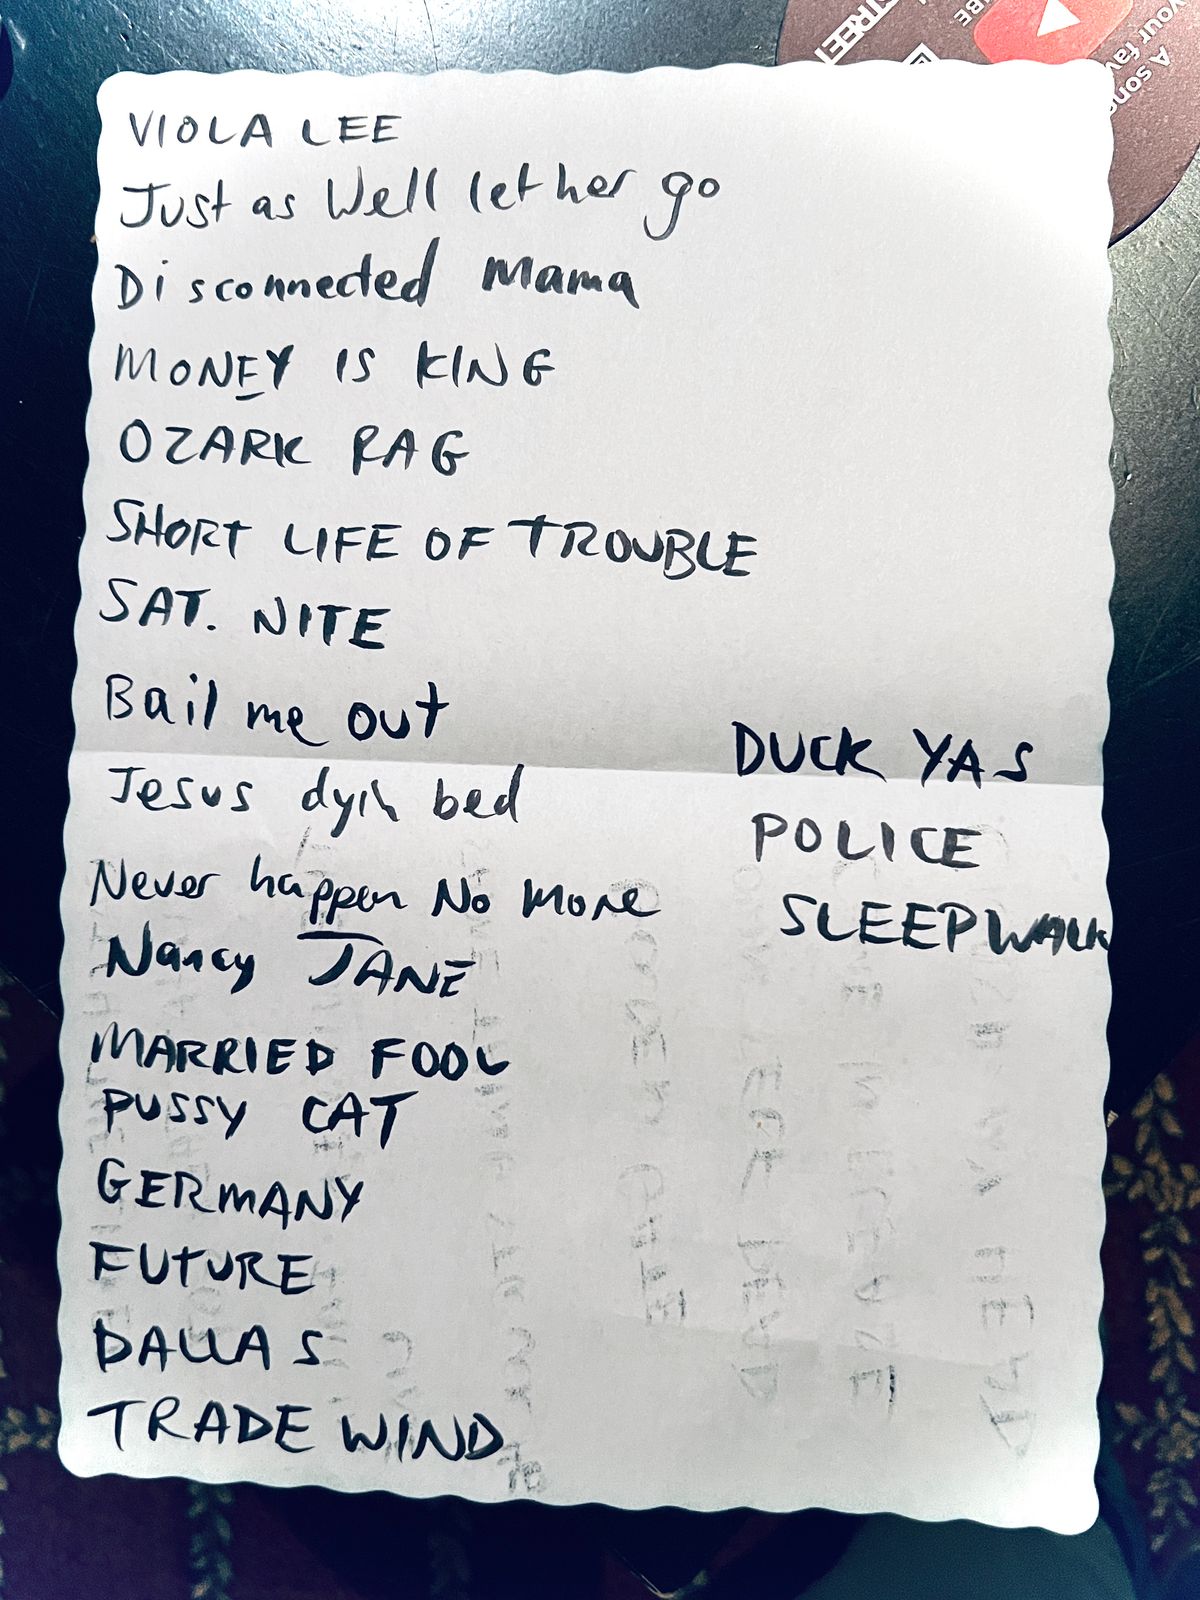 VIOLA LEE
Just as Well let her go
Disconnected Mama
MONEY IS KING
OZARK RAG
SHORT LIFE OF TROUBLE
SAT. NITE
Bail me out
Jesus dyin bed
Never happen No More
Nancy JANE
MARRIED FOOL
PUSSY CAT
GERMANY
FUTURE
DALLAS
TRADE WIND
DUCK YAS
POLICE
SLEEPWALK
STREET
A song
your fav